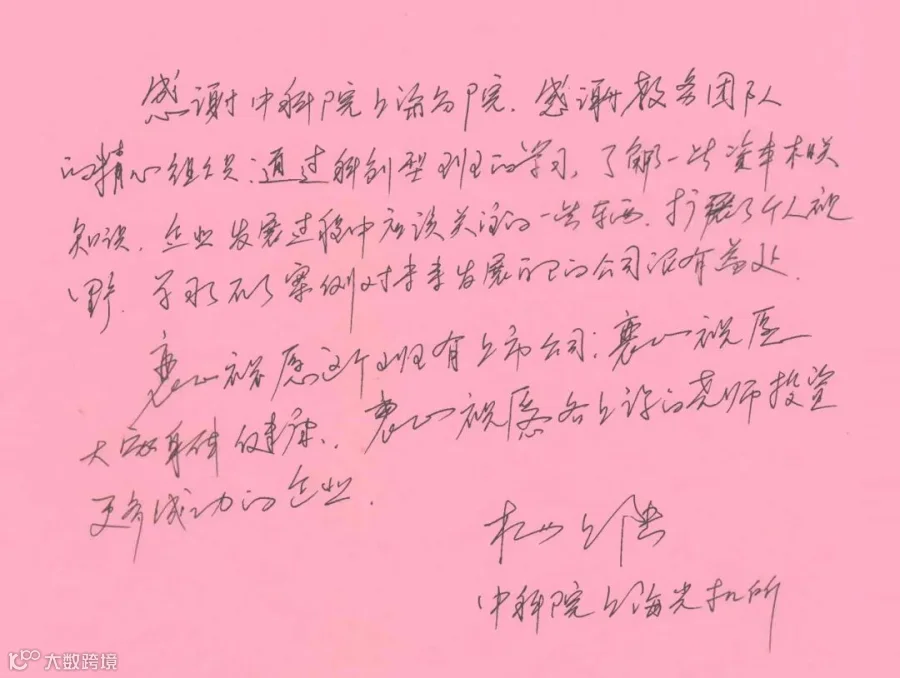 感谢中科院上海分院、感谢教务团队
的精心组织;通过科创型班的学习,了解一些资本相关
知识、企业发展过程中应该关注的一些东西、扩展了个人视
野、学习了案例对未来发展的公司没有益处.
衷心祝愿这个班有上市公司;衷心祝愿
大家身体健康、衷心祝愿各上课的老师投资
更多成功的企业.
中科院上海光机所
大数跨境